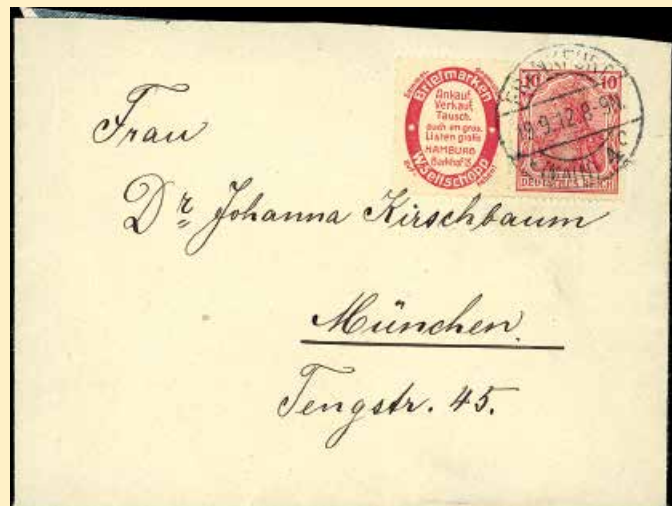 Briefmarken
Ankauf,
Verkauf,
Tausch.
auch en gros.
Listen gratis
HAMBURG
Barkhof 3
W.Sellschopp
10 10
DEUTSCHES REICH
19.9.12.8-9N.
(MAIN)
Frau
Dr. Johanna Kirschbaum
München.
Tengstr. 45.